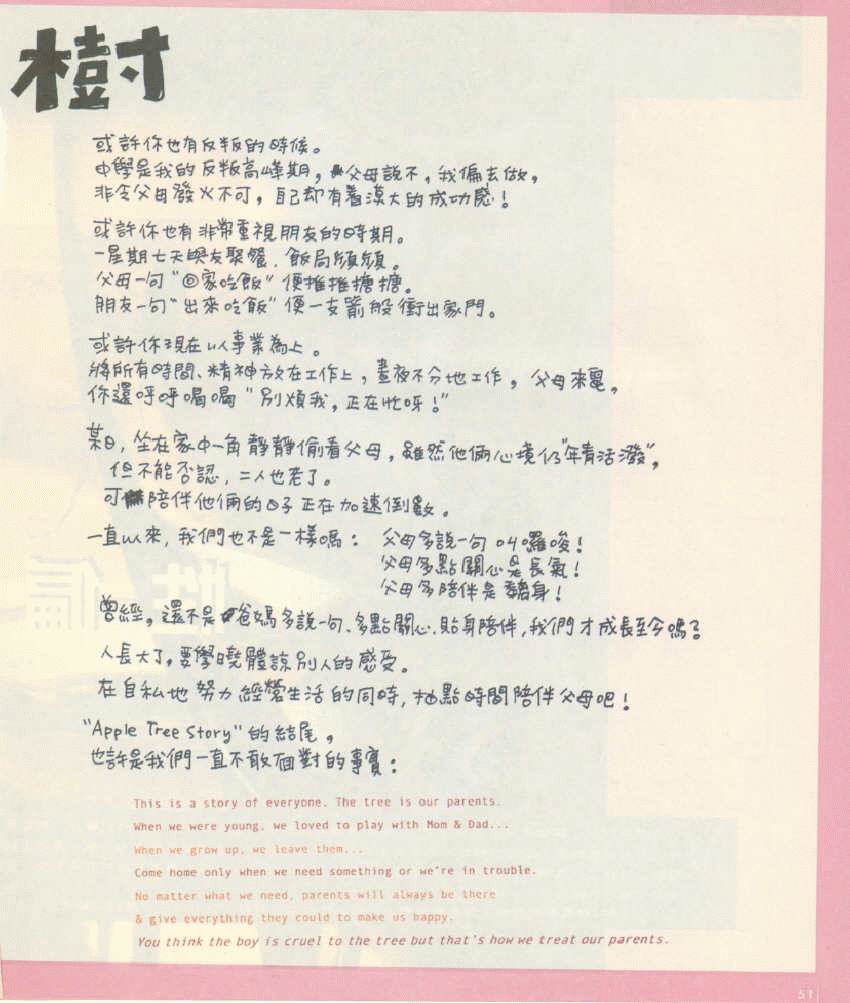 樹
或許你也有反叛的時候。
中學是我的反叛高峰期，父母說不，我偏去做，
非令父母發火不可，自己却有着漠大的成功感！
或許你也有非常重視朋友的時期。
一星期七天與友聚餐．飯局頻頻。
父母一句"回家吃飯"便推推搪搪。
朋友一句"出來吃飯"便一支箭般衝出家門。
或許你現在以事業為上。
將所有時間、精神放在工作上，晝夜不分地工作，父母來電，
你還呼呼喝喝"別煩我，正在忙呀！"
某日，坐在家中一角靜靜偷看父母，雖然他倆心境仍"年青活潑"，
但不能否認，二人也老了。
可陪伴他倆的日子正在加速倒數。
一直以來，我們也不是一樣嗎： 父母多說一句叫囉唆！
父母多點關心是長氣！
父母多陪伴是黐身！
曾經，還不是爸媽多說一句、多點關心、貼身陪伴，我們才成長至今嗎？
人長大了，要學曉體諒別人的感受。
在自私地努力經營生活的同時，抽點時間陪伴父母吧！
"Apple Tree Story"的結尾，
也許是我們一直不敢面對的事實：
This is a story of everyone. The tree is our parents.
When we were young, we loved to play with Mom & Dad...
When we grow up, we leave them...
Come home only when we need something or we're in trouble.
No matter what we need, parents will always be there
& give everything they could to make us happy.
You think the boy is cruel to the tree but that's how we treat our parents.
51